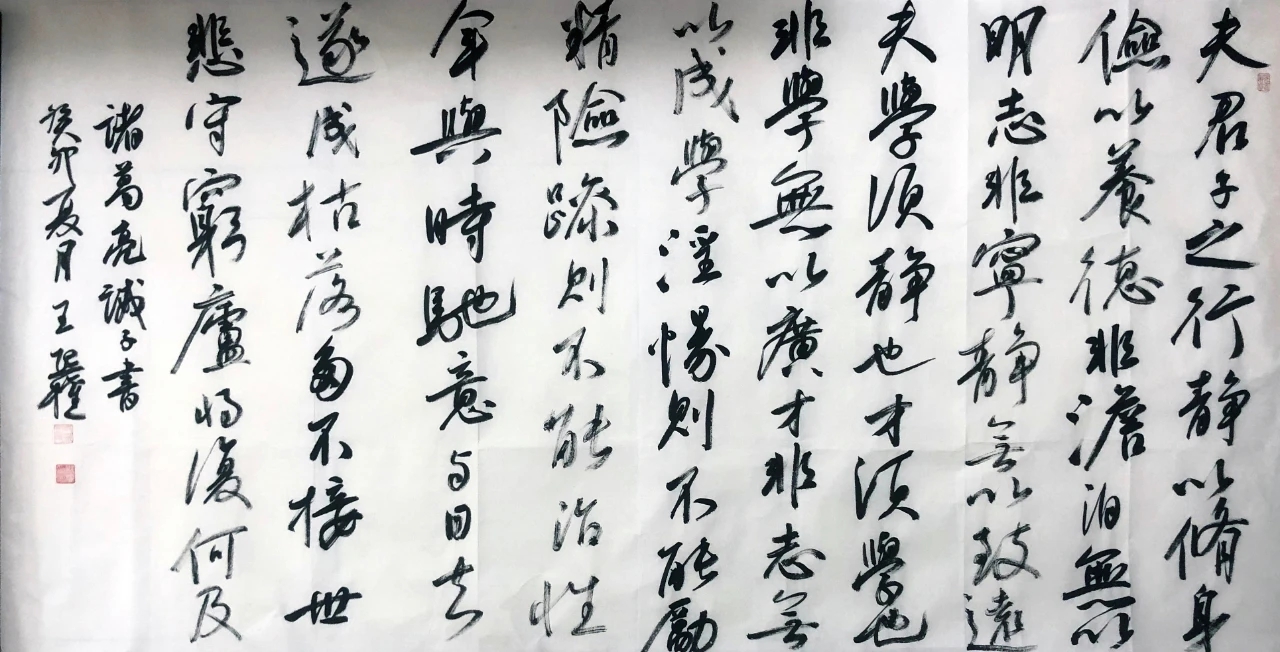 夫君子之行静以脩身
儉以養德非澹泊無以
明志非寧静无以致遠
夫學須静也才須學也
非學無以廣才非志无
以成學淫慢則不能勵
精險躁則不能治性
年與時馳意与日去
遂成枯落多不接世
悲守窮廬将復何及
諸葛亮誡子書
癸卯夏月王